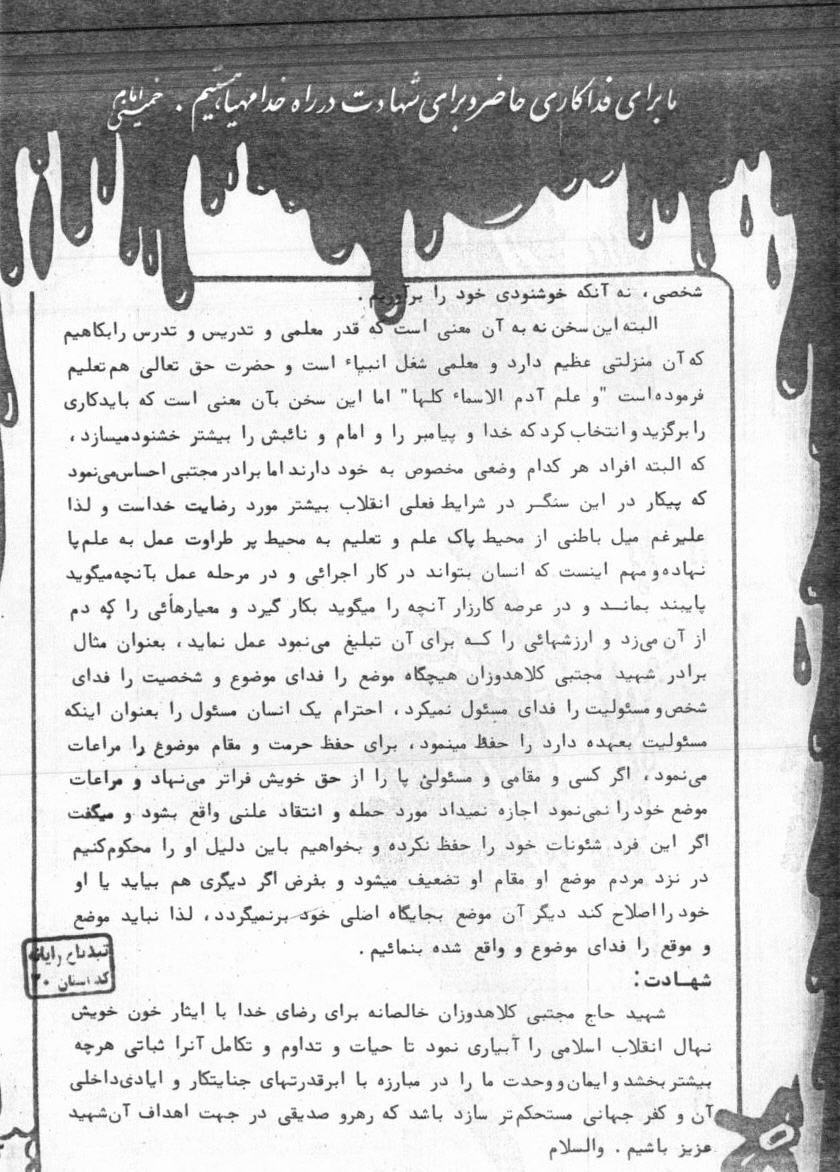 ما برای فداکاری حاضر و برای شهادت در راه خدا مهیا هستیم . امام خمینی
شخصی، نه آنکه خوشنودی خود را برآوریم .
البته این سخن نه به آن معنی است که قدر معلمی و تدریس و تدرس را بکاهیم
که آن منزلتی عظیم دارد و معلمی شغل انبیاء است و حضرت حق تعالی هم تعلیم
فرموده است "و علم آدم الاسماء کلها" اما این سخن بآن معنی است که باید کاری
را برگزید و انتخاب کرد که خدا و پیامبر را و امام و نائبش را بیشتر خشنود میسازد ،
که البته افراد هر کدام وضعی مخصوص به خود دارند اما برادر مجتبی احساس می‌نمود
که پیکار در این سنگر در شرایط فعلی انقلاب بیشتر مورد رضایت خداست و لذا
علیرغم میل باطنی از محیط پاک علم و تعلیم به محیط پر طراوت عمل به علم پا
نهاده و مهم اینست که انسان بتواند در کار اجرائی و در مرحله عمل بآنچه میگوید
پایبند بماند و در عرصه کارزار آنچه را میگوید بکار گیرد و معیارهائی را که دم
از آن می‌زد و ارزشهائی را که برای آن تبلیغ می‌نمود عمل نماید ، بعنوان مثال
برادر شهید مجتبی کلاهدوزان هیچگاه موضع را فدای موضوع و شخصیت را فدای
شخص و مسئولیت را فدای مسئول نمیکرد ، احترام یک انسان مسئول را بعنوان اینکه
مسئولیت بعهده دارد را حفظ مینمود ، برای حفظ حرمت و مقام موضوع را مراعات
می‌نمود ، اگر کسی و مقامی و مسئولی پا را از حق خویش فراتر می‌نهاد و مراعات
موضع خود را نمی‌نمود اجازه نمیداد مورد حمله و انتقاد علنی واقع بشود و میگفت
اگر این فرد شئونات خود را حفظ نکرده و بخواهیم باین دلیل او را محکوم کنیم
در نزد مردم موضع او مقام او تضعیف میشود و بفرض اگر دیگری هم بیاید یا او
خود را اصلاح کند دیگر آن موضع بجایگاه اصلی خود برنمیگردد ، لذا نباید موضع
و موقع را فدای موضوع و واقع شده بنمائیم .
شهادت:
شهید حاج مجتبی کلاهدوزان خالصانه برای رضای خدا با ایثار خون خویش
نهال انقلاب اسلامی را آبیاری نمود تا حیات و تداوم و تکامل آنرا ثباتی هرچه
بیشتر بخشد و ایمان و وحدت ما را در مبارزه با ابرقدرتهای جنایتکار و ایادی داخلی
آن و کفر جهانی مستحکم‌تر سازد باشد که رهرو صدیقی در جهت اهداف آن شهید
عزیز باشیم . والسلام
رایانه
کد استان ۳۰